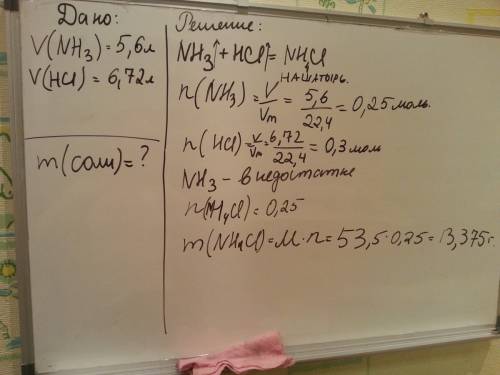 Дано:
V(NH3) = 5,6 л
V(HCl) = 6,72 л
m(соли) = ?
Решение:
NH3↑ + HCl↑ = NHCl
нашатырь.
n(NH3) = V/Vm = 5,6/22,4 = 0,25 моль.
n(HCl) = V/Vm = 6,72/22,4 = 0,3 моль
NH3 - в недостатке
n(NH4Cl) = 0,25
m(NH4Cl) = M·n = 53,5·0,25 = 13,375 г.